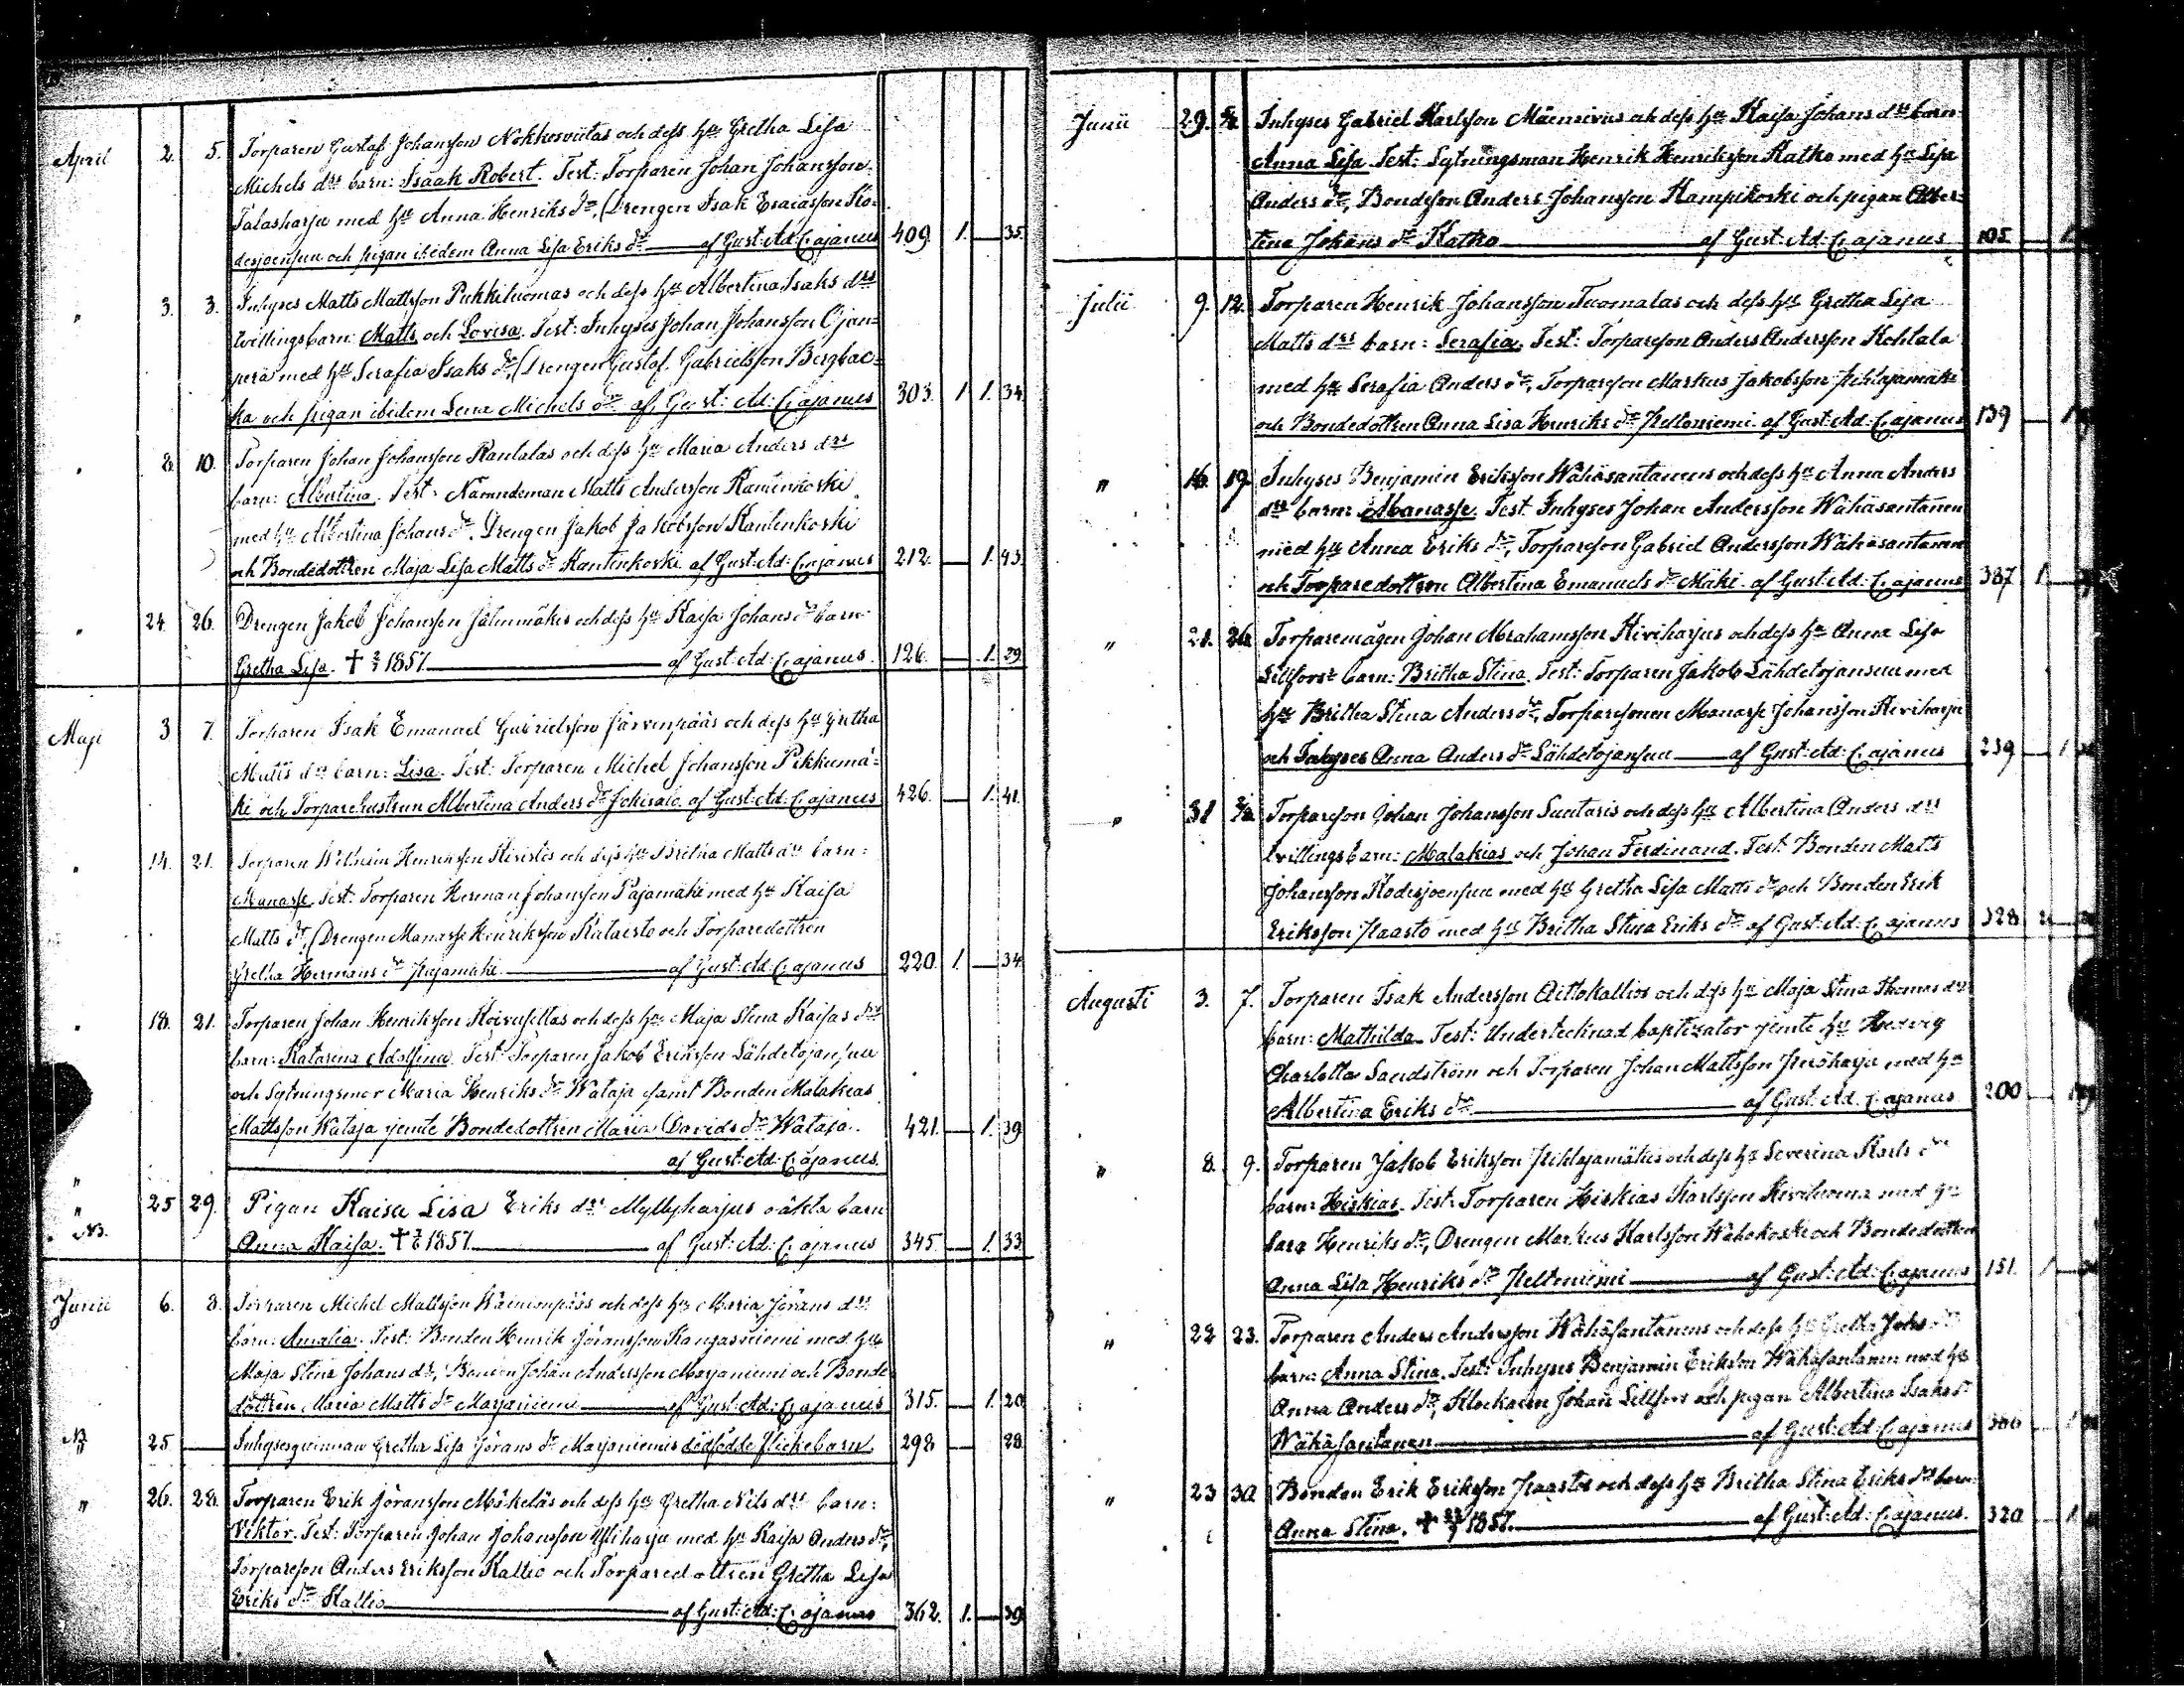 April 2. 5. Torparen Gustaf Johansson Nokkosviitas och dess hu Gretha Lisa
Michels drs barn: Isaak Robert. Test: Torparen Johan Johansson
Talasharju med hu Anna Henriks dr, Drengen Isak Esaiasson Ko-
desjoensuu och pigan ibidem Anna Lisa Eriks dr — af Gust: Ad: Cajanus 409. 1. — 35.
" 3. 3. Inhyses Matts Mattsson Pukkiluomas och dess hu Albertina Isaks drs
tvillingsbarn: Matts och Lovisa. Test: Inhyses Johan Johansson Ojan-
perä med hu Serafia Isaks dr, Drengen Gustaf Gabrielsson Bergbac-
ka och pigan ibidem Lena Michels dr af Gust: Ad: Cajanus 303. 1 1. 34.
" 8. 10. Torparen Johan Johansson Rantalas och dess hu Maria Anders drs
barn: Albertina. Test: Nämndeman Matts Andersson Kantinkoski
med hu Albertina Johans dr, Drengen Jakob Jakobsson Kantinkoski
och Bondedottren Maja Lisa Matts dr Kantinkoski af Gust: Ad: Cajanus 212. — 1. 43.
" 24. 26. Drengen Jakob Johansson Jälinmäkis och dess hu Kaisa Johans drs barn
Gretha Lisa. † 1857. — af Gust: Ad: Cajanus. 126. — 1. 29
Maji 3 7. Torparen Isak Emanuel Gabrielsson Järvenpääs och dess hu Gretha
Matts drs barn: Lisa. Test: Torparen Michel Johansson Pikkumä-
ki och Torparehustrun Albertina Anders dr Jokisalo af Gust: Ad: Cajanus 426. — 1. 41.
" 14. 21. Torparen Wilhelm Henriksson Kivistös och dess hu Britha Matts drs barn:
Manasse. Test: Torparen Herman Johansson Pajamäki med hu Kaisa
Matts dr, Drengen Manasse Henriksson Kataisto och Torparedottren
Gretha Hermans dr Pajamäki — af Gust: Ad: Cajanus 220. 1. — 34.
" 18. 21. Torparen Johan Henriksson Koivusillas och dess hu Maja Stina Kaisas drs
barn: Katarina Adolfina. Test: Torparen Jakob Eriksson Lähdetojansuu
och Sytningsmor Maria Henriks dr Wataja samt Bonden Malakias
Mattsson Wataja jemte Bondedottren Maria Davids dr Wataja. 421. — 1. 39
af Gust: Ad: Cajanus.
" NB. 25 29. Pigan Kaisa Lisa Eriks drs Myllyharjus oäkta barn
Anna Kaisa. † 1857. — af Gust: Ad: Cajanus 345. — 1. 33.
Junii 6. 8. Torparen Michel Mattsson Wäinionpääs och dess hu Maria Jörans drs
barn: Amalia. Test: Bonden Henrik Göransson Kangasniemi med hu
Maja Stina Johans dr, Bonden Johan Andersson Marjaniemi och Bonde
dottren Maria Matts dr Marjaniemi — af Gust: Ad: Cajanus 315. — 1. 20
NB " 25 — Inhysesqvinnan Gretha Lisa Jörans dr Marjaniemis dödfödde flickebarn. 298 — 28
" 26. 28. Torparen Erik Jöransson Mäkeläs och dess hu Gretha Nils drs barn:
Viktor. Test: Torparen Johan Johansson Yliharja med hu Kaisa Anders dr,
Torpareson Anders Eriksson Kallio och Torparedottren Gretha Lisa
Eriks dr Kallio — af Gust: Ad: Cajanus 362. 1. — 39
Junii 29. Inhyses Gabriel Karlsson Mäensivus och dess hu Kaisa Johans drs barn
Anna Lisa. Test: Sytningsman Henrik Henriksson Katko med hu Lisa
Anders dr, Bondeson Anders Johansson Kampikoski och pigan Alber-
tina Johans dr Katko — af Gust: Ad: Cajanus 105 — 1
Julii 9. 12. Torparen Henrik Johansson Tuomalas och dess hu Gretha Lisa
Matts drs barn: Serafia. Test: Torpareson Anders Andersson Kohtala
med hu Serafia Anders dr, Torpareson Markus Jakobsson Pihlajamäki
och Bondedottren Anna Lisa Henriks dr Peltoniemi af Gust: Ad: Cajanus 139 — 1
" 16. 19. Inhyses Benjamin Eriksson Wähäsantanens och dess hu Anna Anders
drs barn: Manasse. Test: Inhyses Johan Andersson Wähäsantanen
med hu Anna Eriks dr, Torpareson Gabriel Andersson Wähäsantanen
och Torparedottren Albertina Emanuels dr Mäki af Gust: Ad: Cajanus 387 1. —
" 21. 26. Torparemågen Johan Abrahamsson Kiviharjus och dess hu Anna Lisa
Lillfors barn: Britha Stina. Test: Torparen Jakob Lähdetojansuu med
hu Britha Stina Anders dr, Torparesonen Manasse Johansson Kiviharju
och Inhyses Anna Anders dr Lähdetojansuu — af Gust: Ad: Cajanus 239 — 1
" 31 Torpareson Johan Johansson Suutaris och dess hu Albertina Anders drs
tvillingsbarn: Malakias och Johan Ferdinand. Test: Bonden Matts
Johansson Kodesjoensuu med hu Gretha Lisa Matts dr och Bonden Erik
Eriksson Haasto med hu Britha Stina Eriks dr af Gust: Ad: Cajanus 328 2 —
Augusti 3. 7. Torparen Isak Andersson Aittokallios och dess hu Maja Stina Thomas drs
barn: Mathilda. Test: Undertecknad baptizator jemte hu Hedvig
Charlotta Sandström och Torparen Johan Mattsson Peräharju med hu
Albertina Eriks dr — af Gust: Ad: Cajanus 200 —
" 8. 9. Torparen Jakob Eriksson Pihlajamäkis och dess hu Severina Karls drs
barn: Hiskias. Test: Torparen Hiskias Karlsson Kiviluoma med hu
Sara Henriks dr, Drengen Markus Karlsson Wähäkoski och Bondedottren
Anna Lisa Henriks dr Peltoniemi — af Gust: Ad: Cajanus 151. 1 —
" 22 23. Torparen Anders Andersson Wähäsantanens och dess hu Gretha Johs drs
barn: Anna Stina. Test: Inhyses Benjamin Eriksson Wähäsantanen med hu
Anna Anders dr, Klockaren Johan Lillfors och pigan Albertina Isaks dr
Wähäsantanen — af Gust: Ad: Cajanus — 1
" 23 30. Bonden Erik Eriksson Haastos och dess hu Britha Stina Eriks drs barn
Anna Stina. † 1857. — af Gust: Ad: Cajanus. 320 — 1